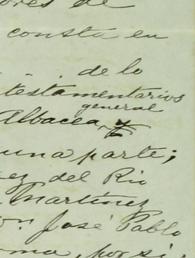 de
consta en
de lo
testamentarios
general
Albacea y
una parte;
ez del Rio
Martinez
José Pablo